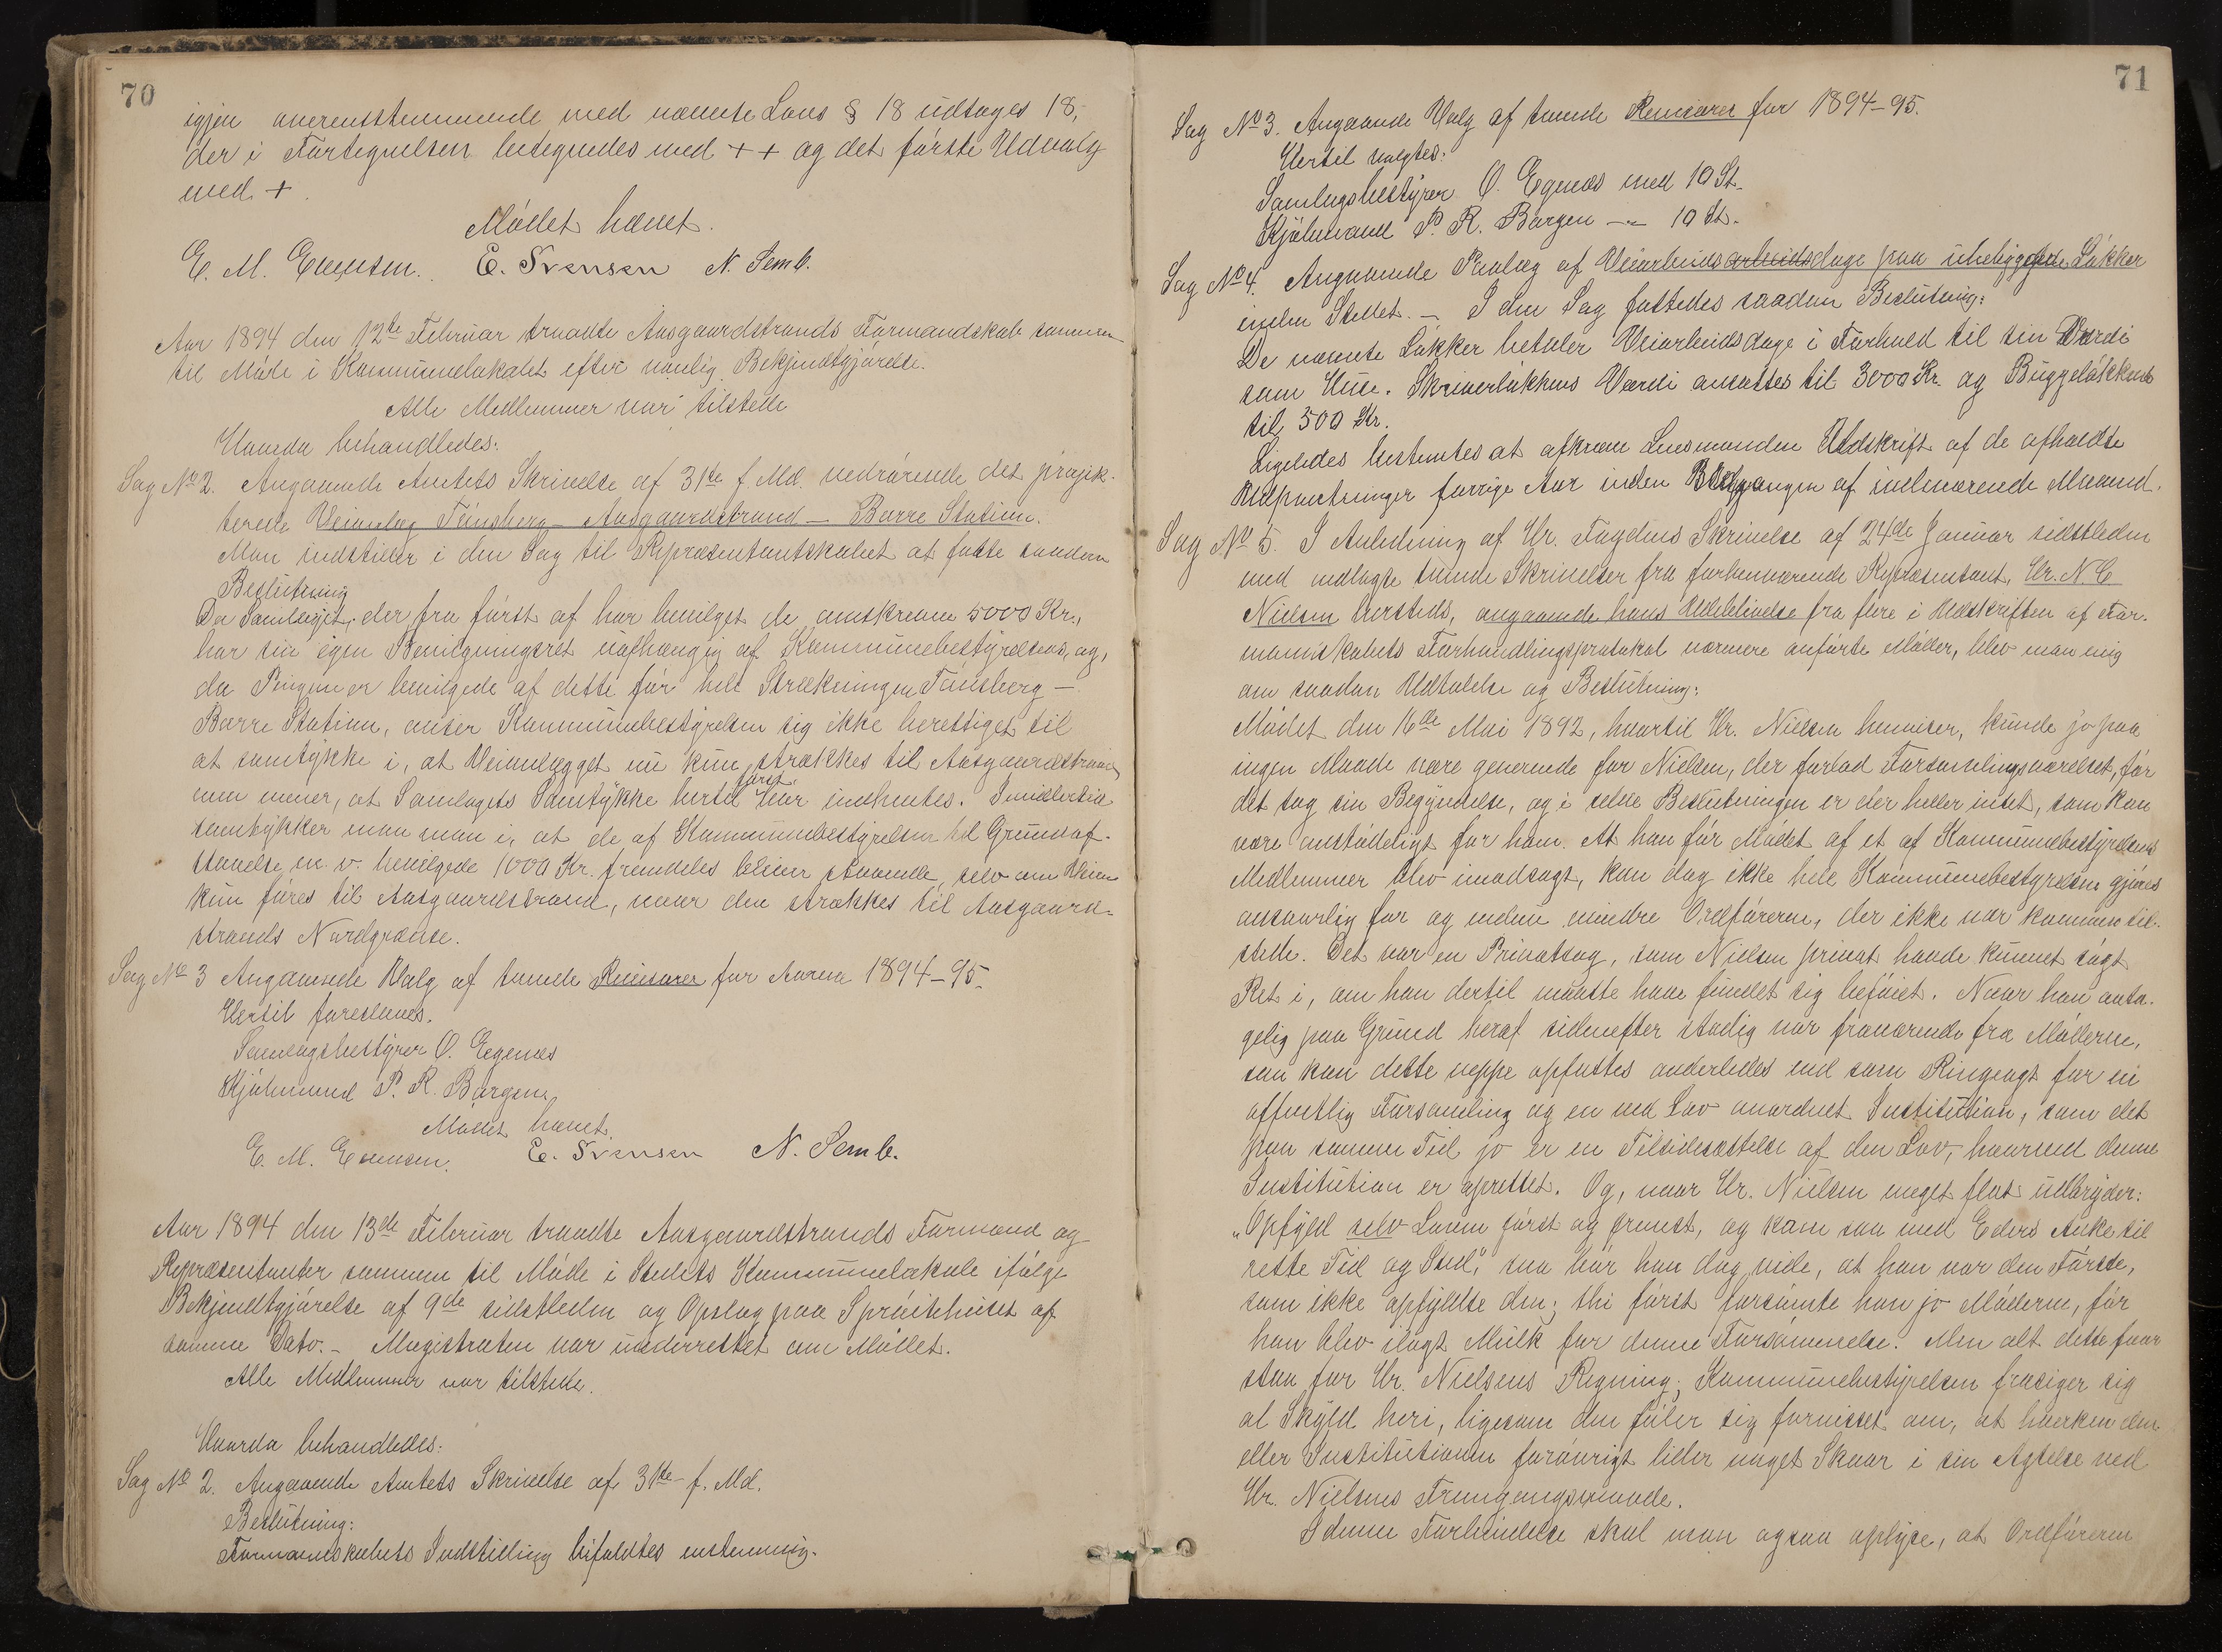 70
igjen overensstemmende med nævnte Lovs § 18 udtoges 18,
der i Fortegnelsen betegnedes med ++ og det første Udvalg
med +.
Mødet hævet.
E. M. Evensen. E. Svensen N. Semb.
Aar 1894 den 12te Februar traadte Aasgaardstrands Formandskab sammen
til Møde i Kommunelokalet efter vanlig Bekjendtgjørelse.
Alle Medlemmer var tilstede
Hvorda behandledes:
Sag No 2. Angaaende Amtets Skrivelse af 31te f. Md. vedrørende det projek-
terede Veianlæg Tønsberg – Aasgaardstrand – Borre Station.
Man indstiller i den Sag til Repræsentantskabet at fatte saadan
Beslutning
Da Samlaget, der fra først af har bevilget de omskrevne 5000 Kr.,
har sin egen Bevilgningsret uafhængig af Kommunebestyrelsens, og,
da Pengene er bevilgede af dette for hele Strækningen Tønsberg –
Borre Station, anser Kommunebestyrelsen sig ikke berettiget til
at samtykke i, at Veianlægget nu kun strækkes til Aasgaardstrand,
men mener, at Samlagets Samtykke hertil først bør indhentes. Imidlertid
samtykker man man i, at de af Kommunebestyrelsen til Grundaf-
staaelse m. v. bevilgede 1000 Kr. fremdeles bliver staaende, selv om Veien
kun føres til Aasgaardstrand, naar den strækkes til Aasgaard-
strands Nordgrænse.
Sag No 3 Angaaende Valg af tvende Revisorer for Aarene 1894–95.
Hertil foresloves.
Samlagsbestyrer O. Egenæs
Kjøbmand P. R. Borgen,
Mødet hævet.
E. M. Evensen. E. Svensen N. Semb.
Aar 1894 den 13de Februar traadte Aasgaardstrands Formænd og
Repræsentanter sammen til Møde i Stedets Kommunelokale ifølge
Bekjendtgjørelse af 9de sidstleden og Opslag paa Sprøitehuset af
samme Dato. – Magistraten var underrettet om Mødet.
Alle Medlemmer var tilstede.
Hvorda behandledes:
Sag No 2. Angaaende Amtets Skrivelse af 31te f. Md.
Beslutning:
Formandskabets Indstilling bifaldtes enstemmig.
71
Sag No 3. Angaaende Valg af tvende Revisorer for 1894–95.
Hertil valgtes:
Samlagsbestyrer O. Egenæs med 10 St.
Kjøbmand P. R. Borgen –„– 10 St.
Sag No 4. Angaaende Paalæg af Veiarbeids arbeidsdage paa ubebyggede Løkker
inden Stedet. – I den Sag fattedes saadan Beslutning:
De nævnte Løkker betaler Veiarbeidsdage i Forhold til sin Værdi
som Huse. Skriverløkkens Værdi ansættes til 3000 Kr. og Byggeløkkens
til 500 Kr.
Ligeledes bestemtes at afkræve Lensmanden Udskrift af de afholdte
Udpantninger forrige Aar inden Udgangen af indeværende Maaned.
Sag No 5. I Anledning af Hr. Fogdens Skrivelse af 24de Januar sidstleden
med vedlagte tvende Skrivelser fra forhenværende Repræsentant, Hr. N C
Nielsen hersteds, angaaende hans Udeblivelse fra flere i Udskriften af For-
mandskabets Forhandlingsprotokol nærmere anførte Møder, blev man enig
om saadan Udtalelse og Beslutning:
Mødet den 16de Mai 1892, hvortil Hr. Nielsen henviser, kunde jo paa
ingen Maade være generende for Nielsen, der forlod Forsamlingsværelset, før
det tog sin Begyndelse, og i selve Beslutningen er der heller intet, som kan
være anstødeligt for ham. At han før Mødet af et af Kommunebestyrelsens
Medlemmer blev imodsagt, kan dog ikke hele Kommunebestyrelsen gjøres
ansvarlig for og endnu mindre Ordføreren, der ikke var kommen til-
stede. Det var en Privatsag, som Nielsen privat havde kunnet søgt
Ret i, om han dertil maatte have fundet sig beføiet. Naar han anta-
gelig paa Grund heraf sidenefter stadig var fraværende fra Møderne,
saa kan dette neppe opfattes anderledes end som Ringeagt for en
offentlig Forsamling og en ved Lov anordnet Institution, som det
paa samme Tid jo er en Tilsidesættelse af den Lov, hvorved denne
Institution er oprettet. Og, naar Hr. Nielsen meget flot udbryder:
„Opfyld selv Loven først og fremst, og kom saa med Eders Anke til
rette Tid og Sted", saa bør han dog vide, at han var den Første,
som ikke opfyldte den; thi først forsømte han jo Møderne, før
han blev ilagt Mulkt for denne Forsømmelse. Men alt dette faar
staa for Hr. Nielsens Regning; Kommunebestyrelsen frasiger sig
al Skyld heri, ligesom den føler sig forvisset om, at hverken den
eller Institutionen forøvrigt lider noget Skaar i sin Agtelse ved
Hr. Nielsens Fremgangsmaade.
I denne Forbindelse skal man ogsaa oplyse, at Ordføreren